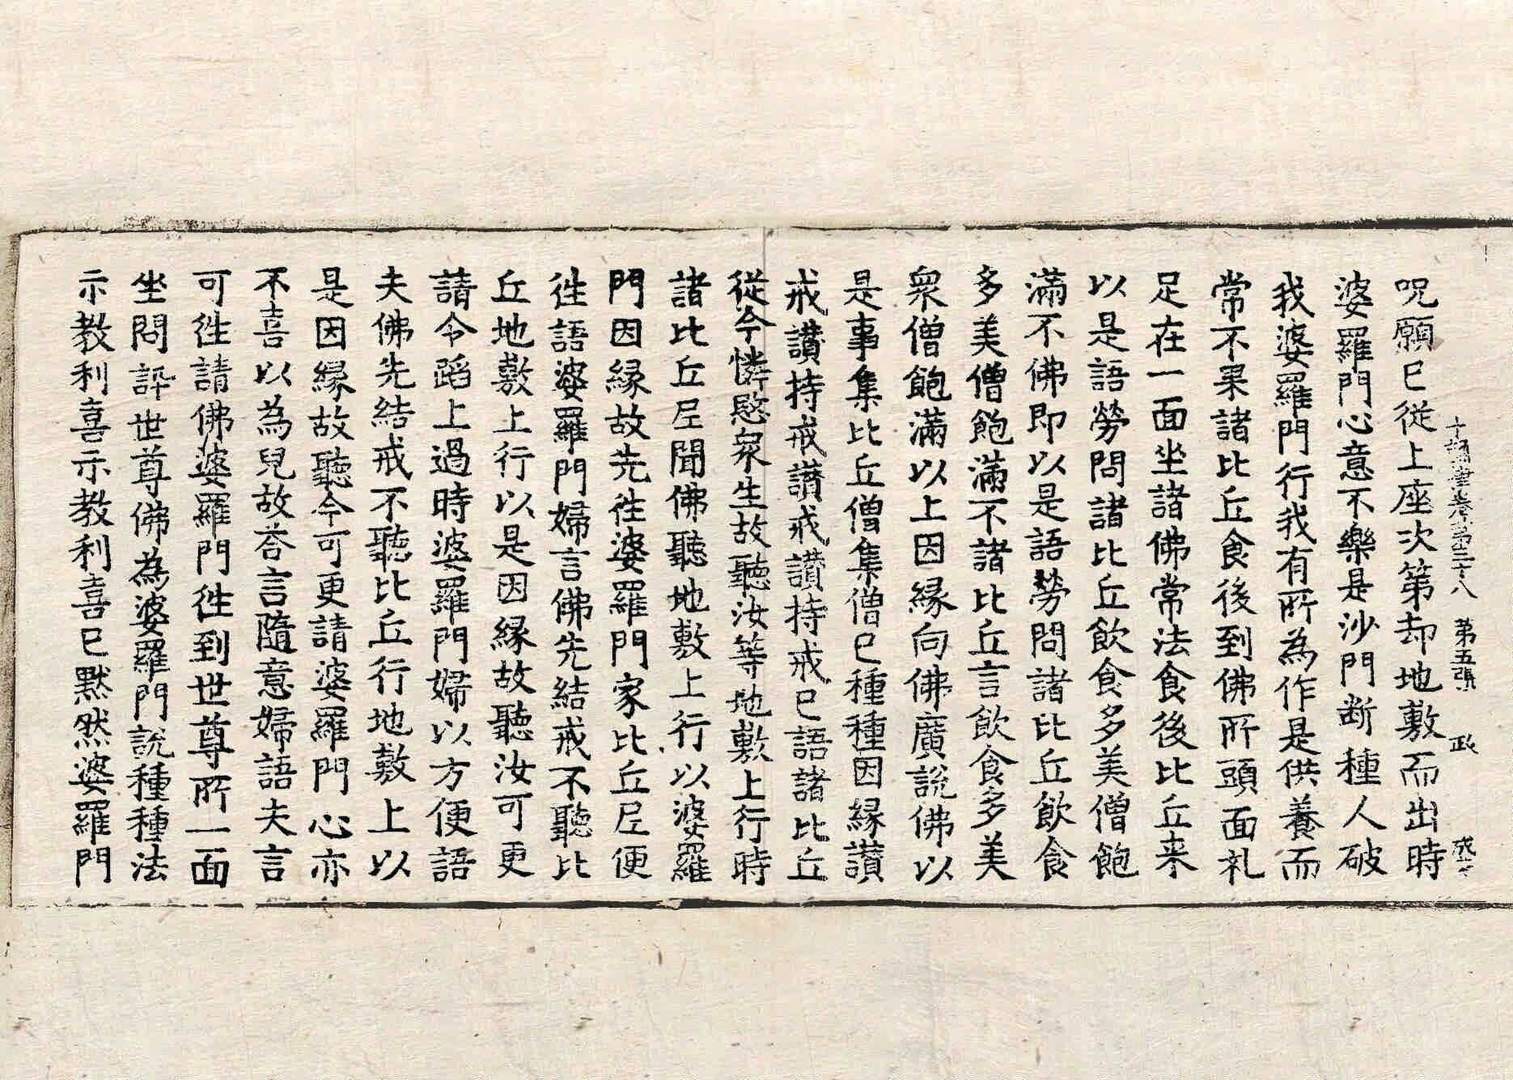 十誦律卷第三十八 第五張 政
呪願已從上座次第却地敷而出時
婆羅門心意不樂是沙門断種人破
我婆羅門行我有所為作是供養而
常不果諸比丘食後到佛所頭面礼
足在一面坐諸佛常法食後比丘来
以是語勞問諸比丘飲食多美僧飽
滿不佛即以是語勞問諸比丘飲食
多美僧飽滿不諸比丘言飲食多美
衆僧飽滿以上因緣向佛廣說佛以
是事集比丘僧集僧已種種因緣讃
戒讃持戒讃戒讃持戒已語諸比丘
從今憐愍衆生故聽汝等地敷上行時
諸比丘尼聞佛聽地敷上行以婆羅
門因緣故先徃婆羅門家比丘尼便
徃語婆羅門婦言佛先結戒不聽比
丘地敷上行以是因緣故聽汝可更
請令蹈上過時婆羅門婦以方便語
夫佛先結戒不聽比丘行地敷上以
是因緣故聽今可更請婆羅門心亦
不喜以為兒故荅言隨意婦語夫言
可徃請佛婆羅門徃到世尊所一面
坐問訊世尊佛為婆羅門說種種法
示教利喜示教利喜已默然婆羅門